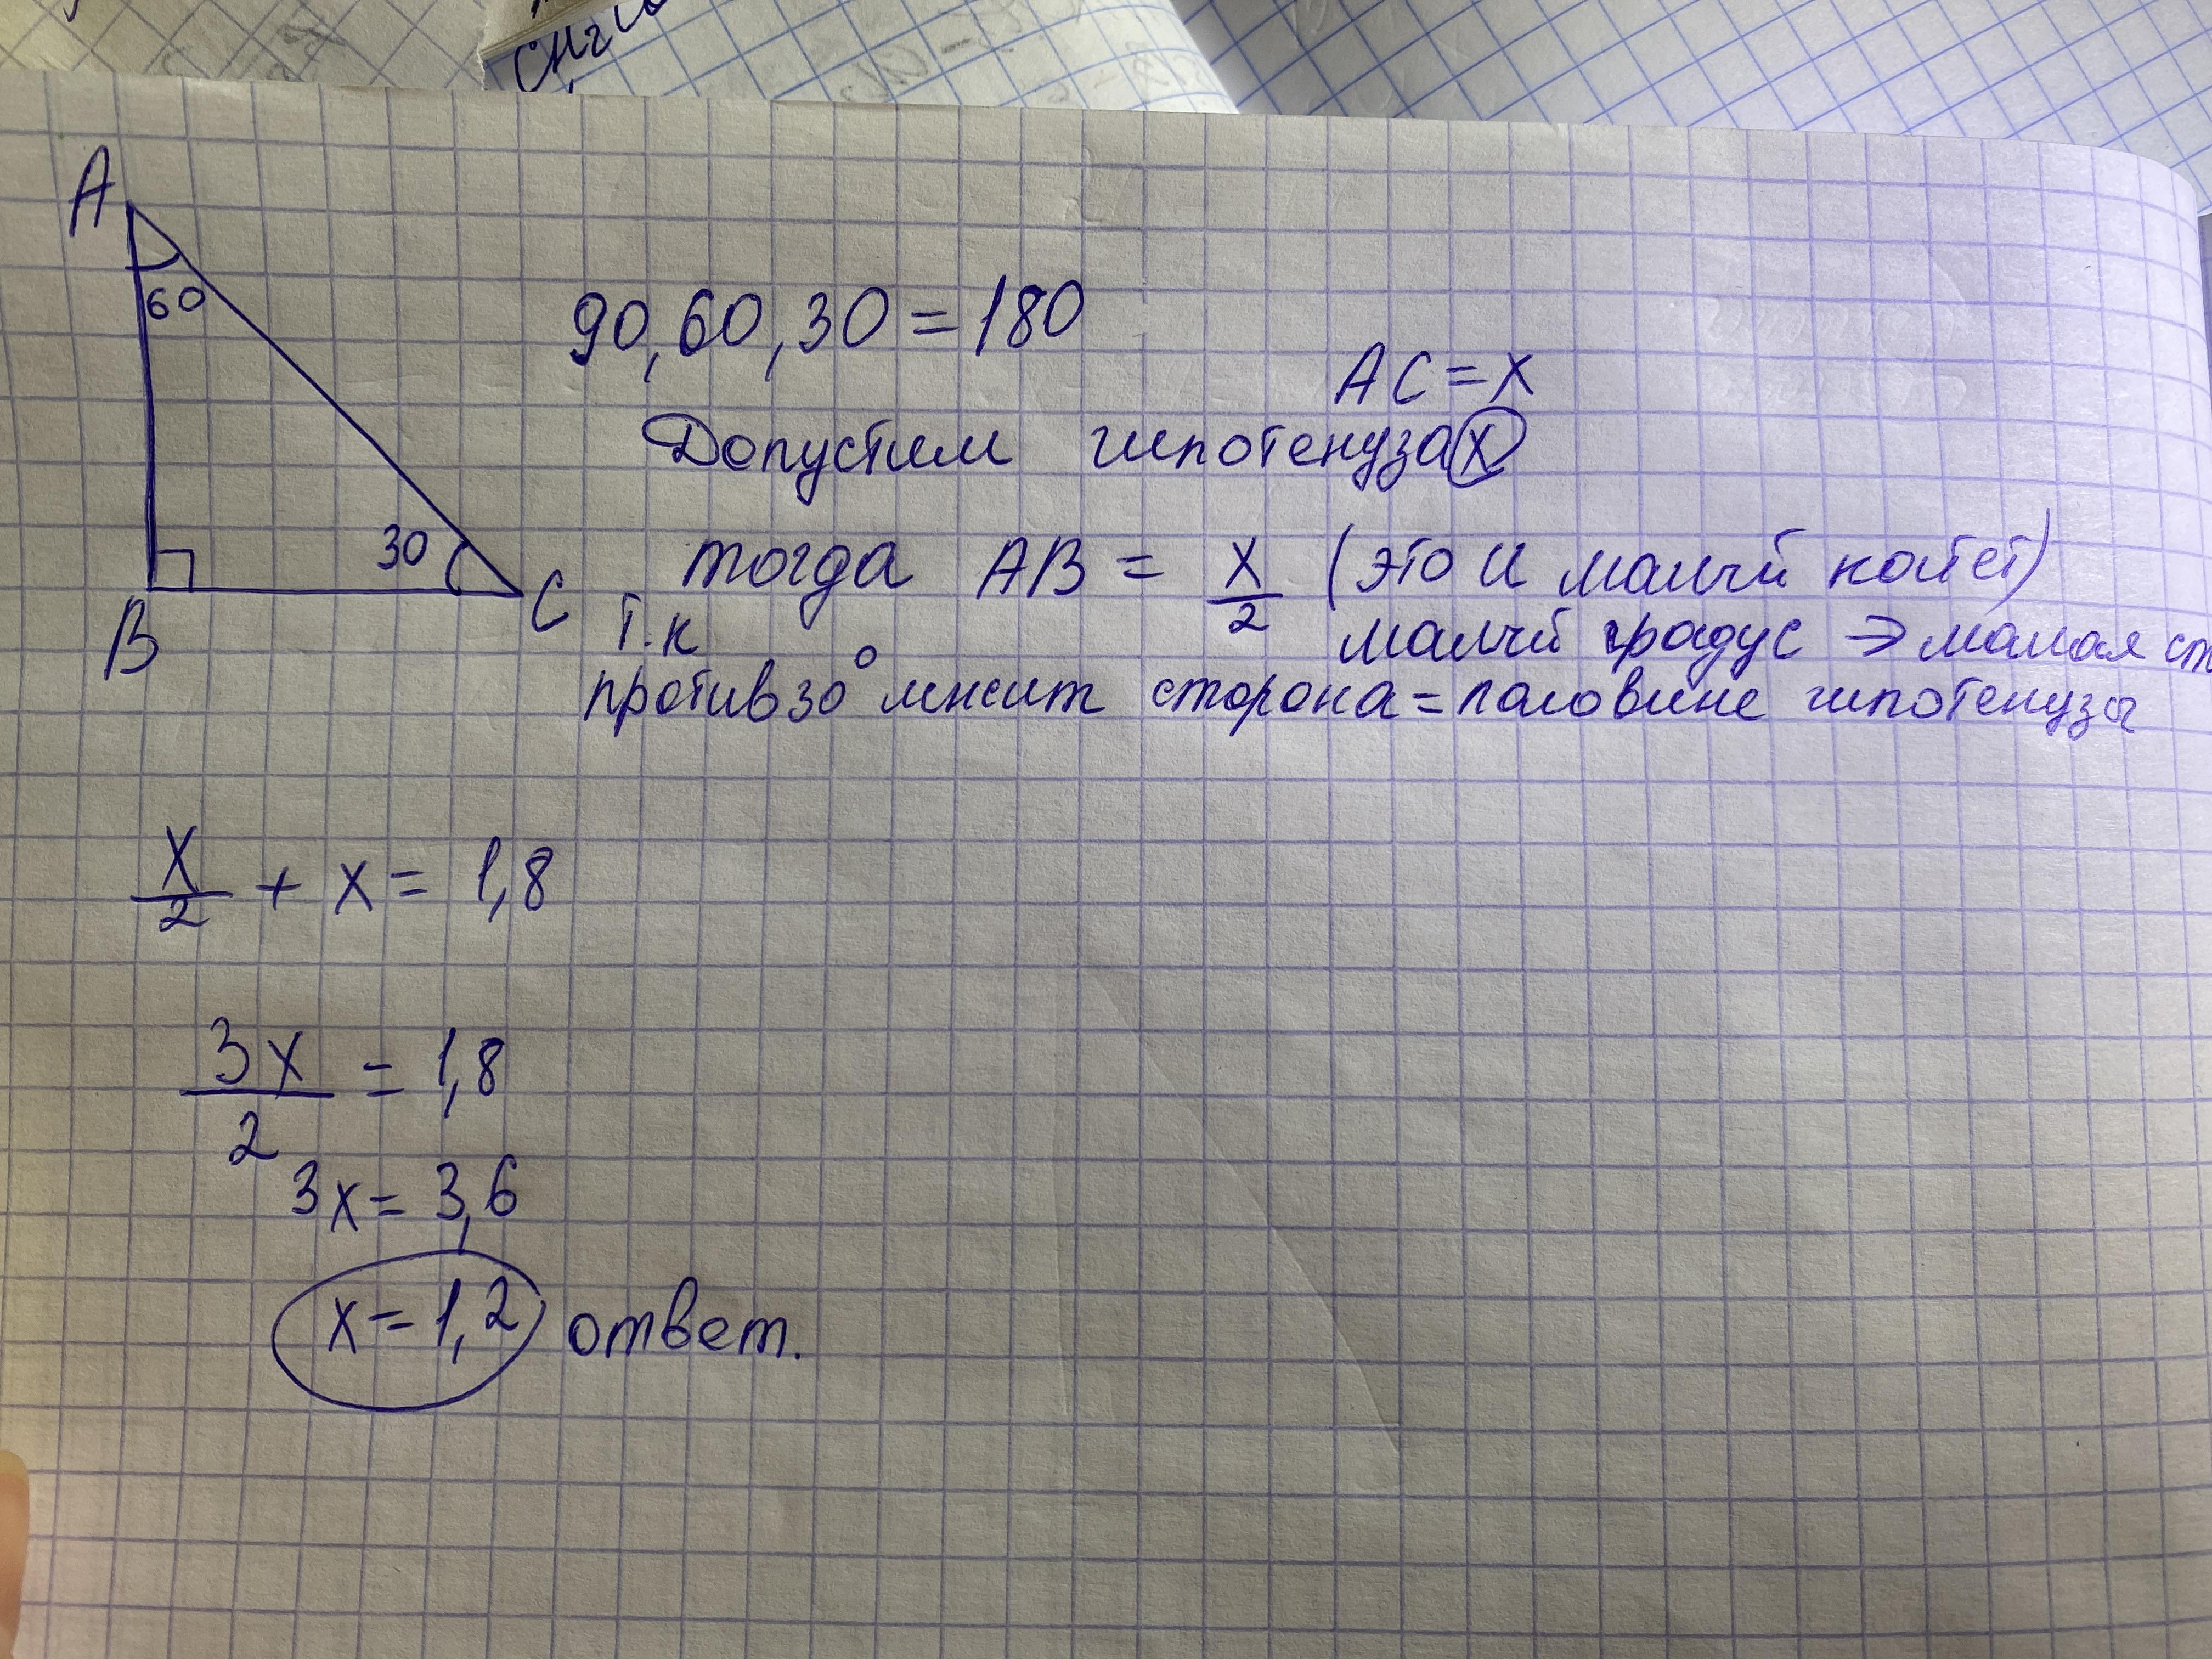 A
60
90, 60, 30 = 180
AC = x
Допустим гипотенуза x
30
тогда AB = x/2 (это и малый катет)
B
C
т.к
малый градус → малая ст
против 30° лежит сторона = половине гипотенузы
x/2 + x = 1,8
3x/2 = 1,8
3x = 3,6
x = 1,2 ответ.